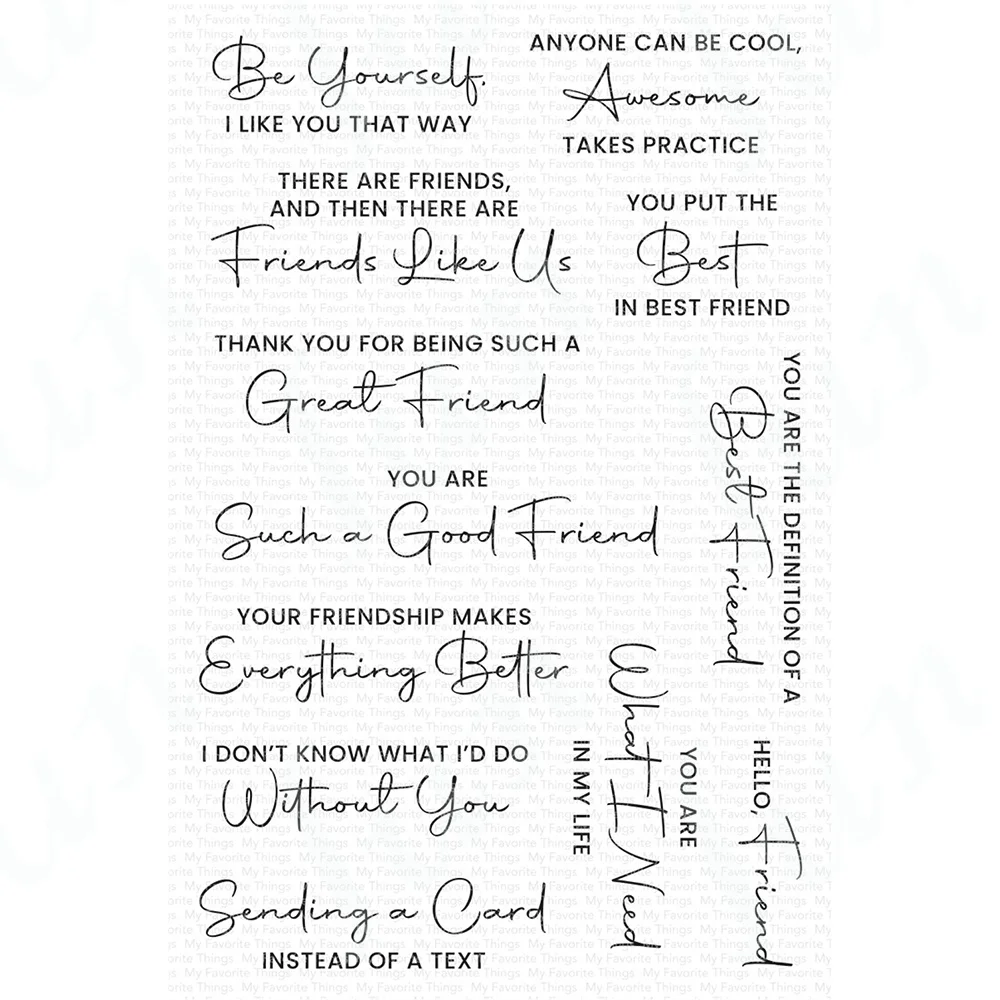 Be Yourself.
I LIKE YOU THAT WAY
ANYONE CAN BE COOL,
Awesome
TAKES PRACTICE
THERE ARE FRIENDS,
AND THEN THERE ARE
Friends Like Us
YOU PUT THE
Best
IN BEST FRIEND
THANK YOU FOR BEING SUCH A
Great Friend
YOU ARE THE DEFINITION OF A
Best Friend
YOU ARE
Such a Good Friend
YOUR FRIENDSHIP MAKES
Everything Better
I DON'T KNOW WHAT I'D DO
Without You
YOU ARE
What I Need
IN MY LIFE
HELLO,
Friend
Sending a Card
INSTEAD OF A TEXT
My Favorite Things